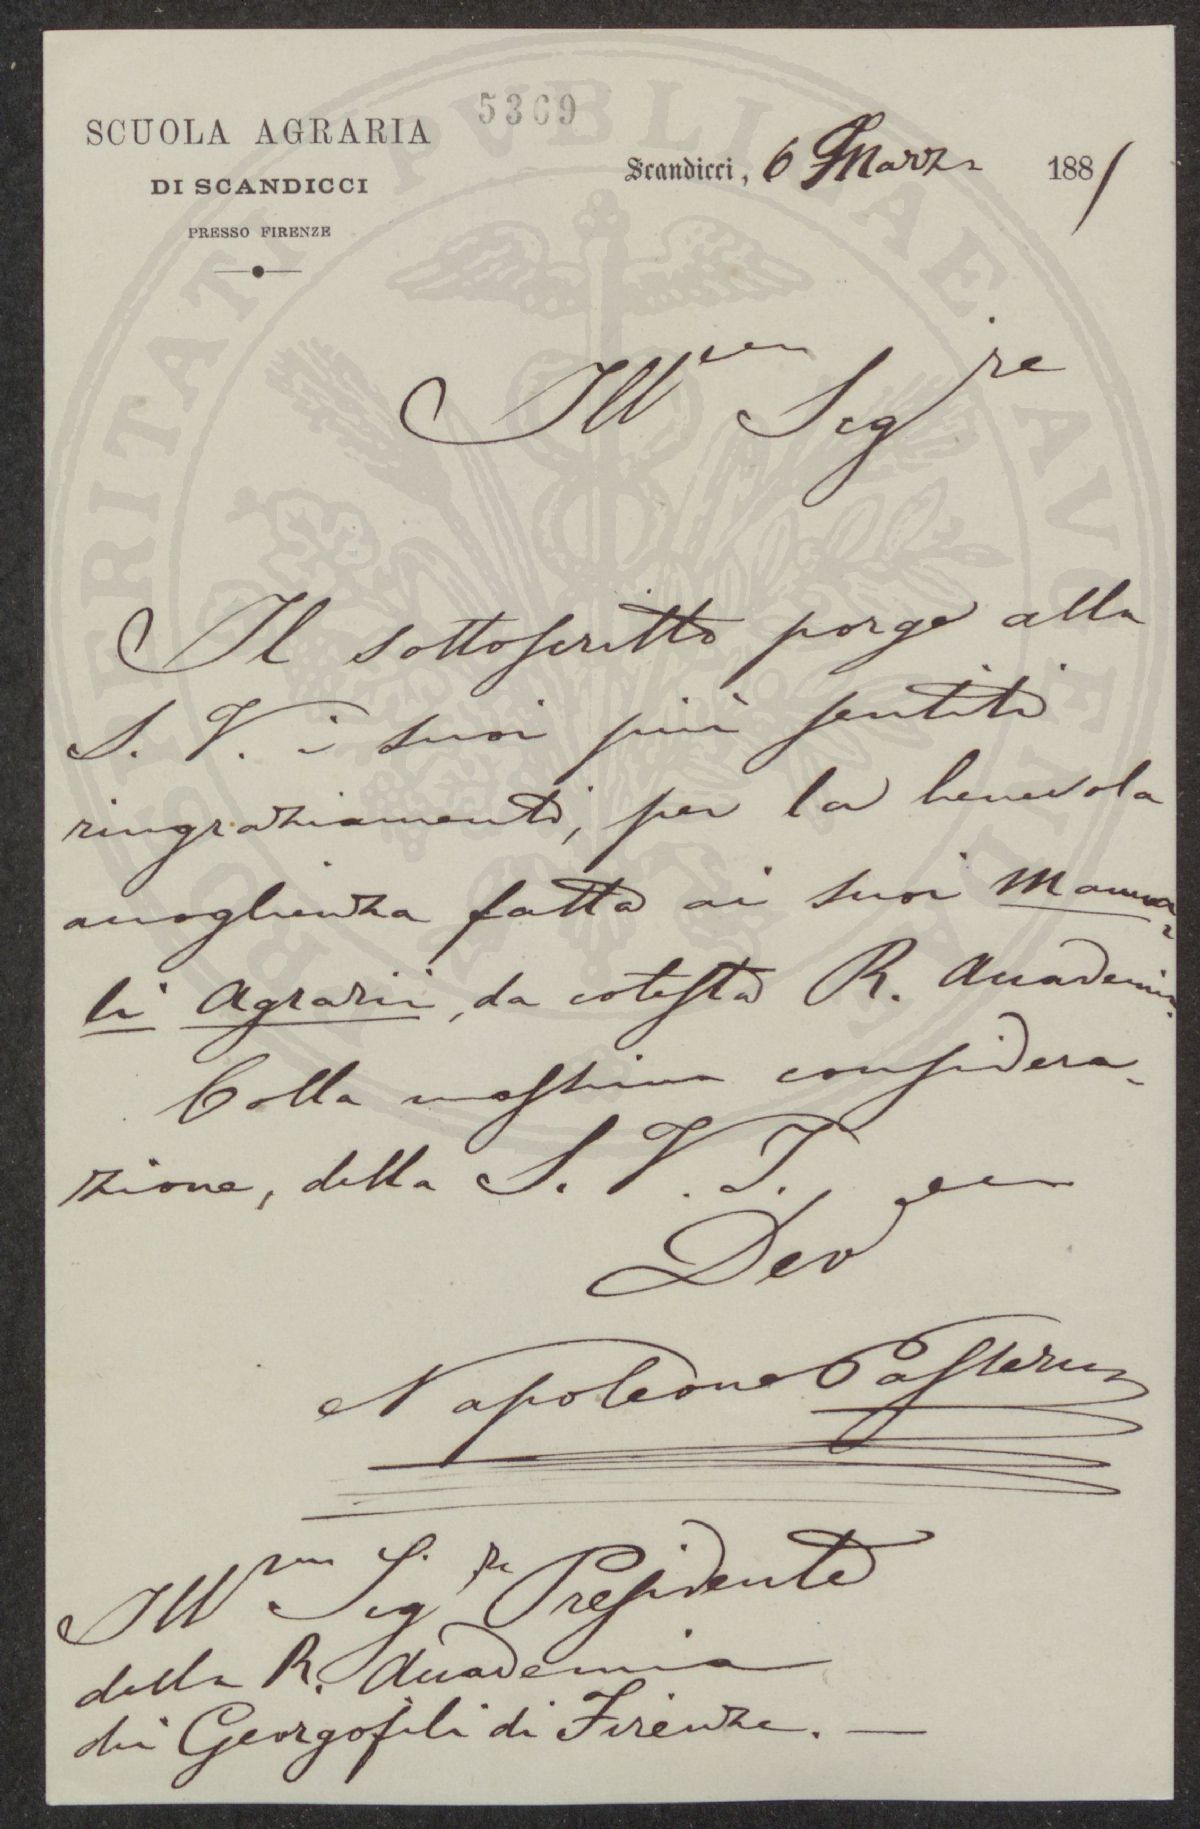 5369
SCUOLA AGRARIA
DI SCANDICCI
PRESSO FIRENZE
Scandicci, 6 Marzo 1881
Illmo Sigre
Il sottoscritto porge alla
S. V. i suoi più sentiti
ringraziamenti, per la benevola
accoglienza fatta ai suoi Manua-
li Agrarii, da cotesta R. Accademia.
Colla massima considera-
zione, della S. V. I.
Devmo
Napoleone Passerini
Illmo Sigre Presidente
della R. Accademia
dei Georgofili di Firenze. —
PROSPERITATI PVBLICAE AVGENDAE